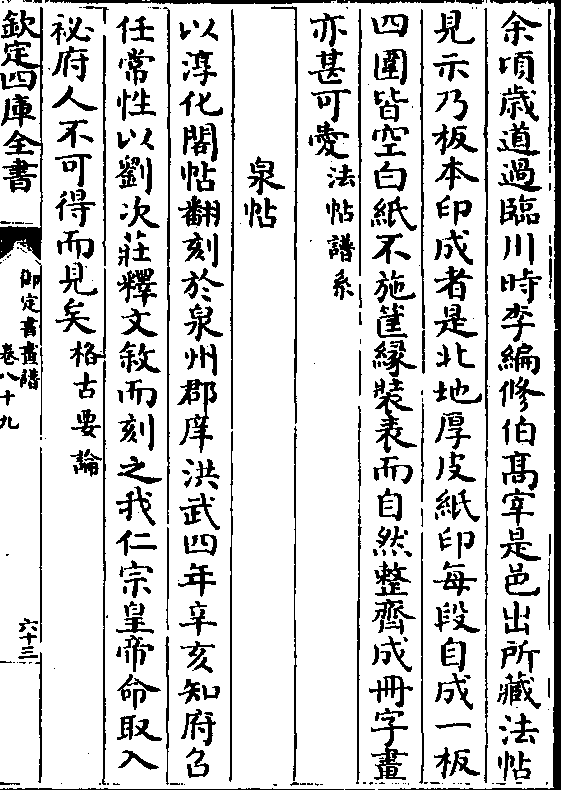 余頃歳道過臨川時李編修伯髙宰是邑出所藏法帖
見示乃板本印成者是北地厚皮紙印每段自成一板
四圍皆空白紙不施筐緣裝表而自然整齊成冊字畫
亦甚可愛法帖譜系
泉帖
以淳化閣帖翻刻於泉州郡庠洪武四年辛亥知府呂
任常性以劉次莊釋文敘而刻之我仁宗皇帝命取入
祕府人不可得而見矣格古要論
欽定四庫全書
御定書畫譜
卷八十九
六十三